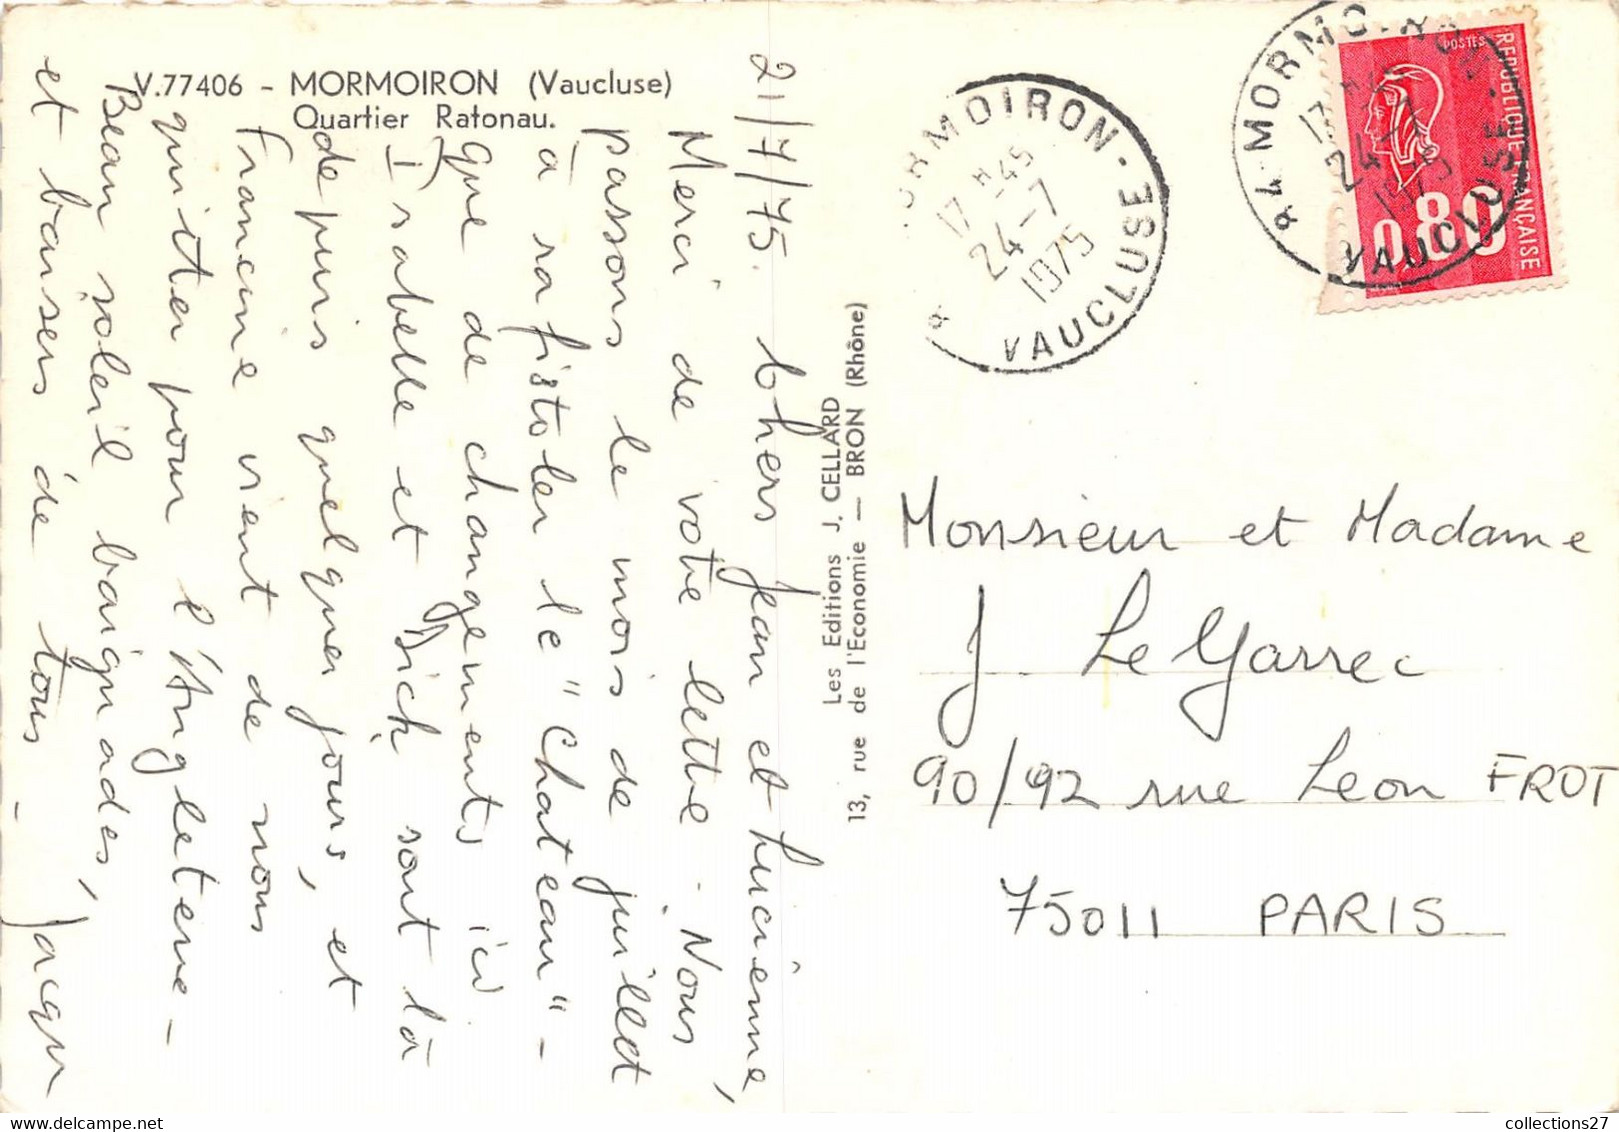 V.77406 - MORMOIRON (Vaucluse)
Quartier Ratonau.
21/7/75. Chers Jean et Lucienne,
Merci de votre lettre - Nous
passons le mois de juillet
à rafistoler le "Chateau" -
que de changements ici
Isabelle et Dick sont là
depuis quelques jours, et
Francine vient de nous
quitter pour l'Angleterre -
Beau soleil baignades,
et baisers de tous - Jacques
Les Editions J. CELLARD
13, rue de l'Economie — BRON (Rhône)
MORMOIRON - VAUCLUSE
17 H 45
24 - 7
1975
84 MORMOIRON - VAUCLUSE
17 H 45
24 - 7
1975
POSTES
REPUBLIQUE FRANÇAISE
0,80
Monsieur et Madame
J Le Garrec
90/92 rue Leon FROT
75011 PARIS
collections27